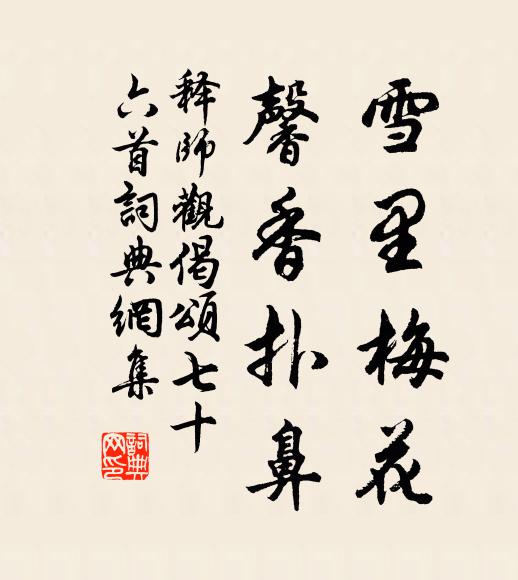 雪里梅花
馨香扑鼻
释師觀偈頌七十
六首詞典網集
詞典
网印